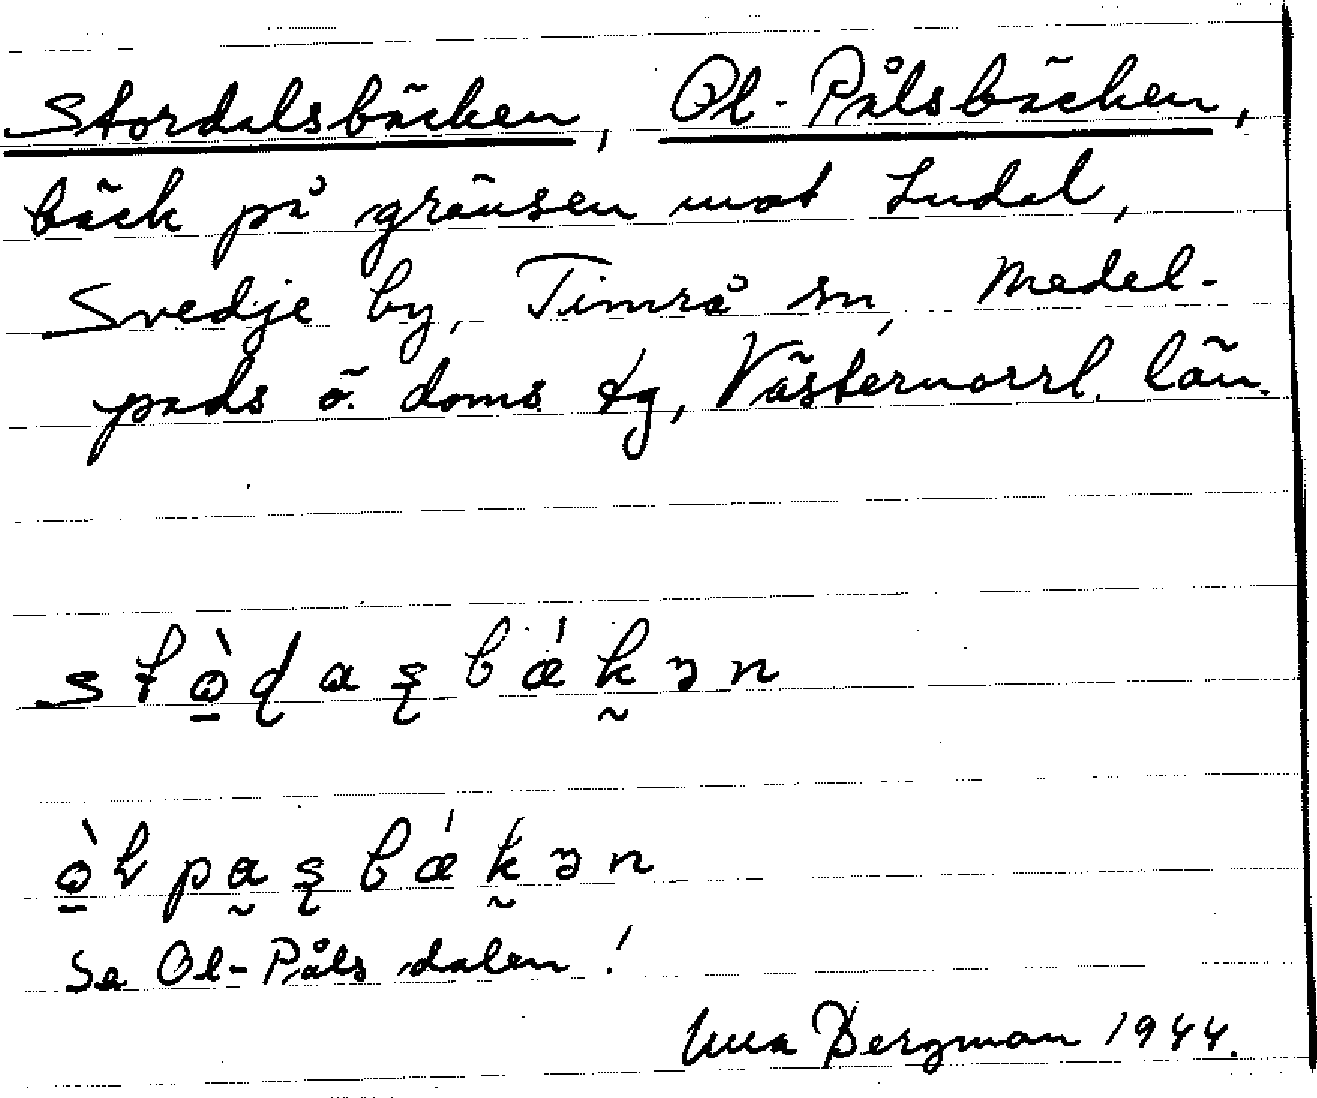 Stordalsbäcken, Ol-Pålsbäcken,
bäck på gränsen mot Ludal,
Svedje by, Timrå sn, Medel-
pads ö. doms. tg, Västernorrl. län.
Se Ol-Påls dalen!
Bergman 1944.